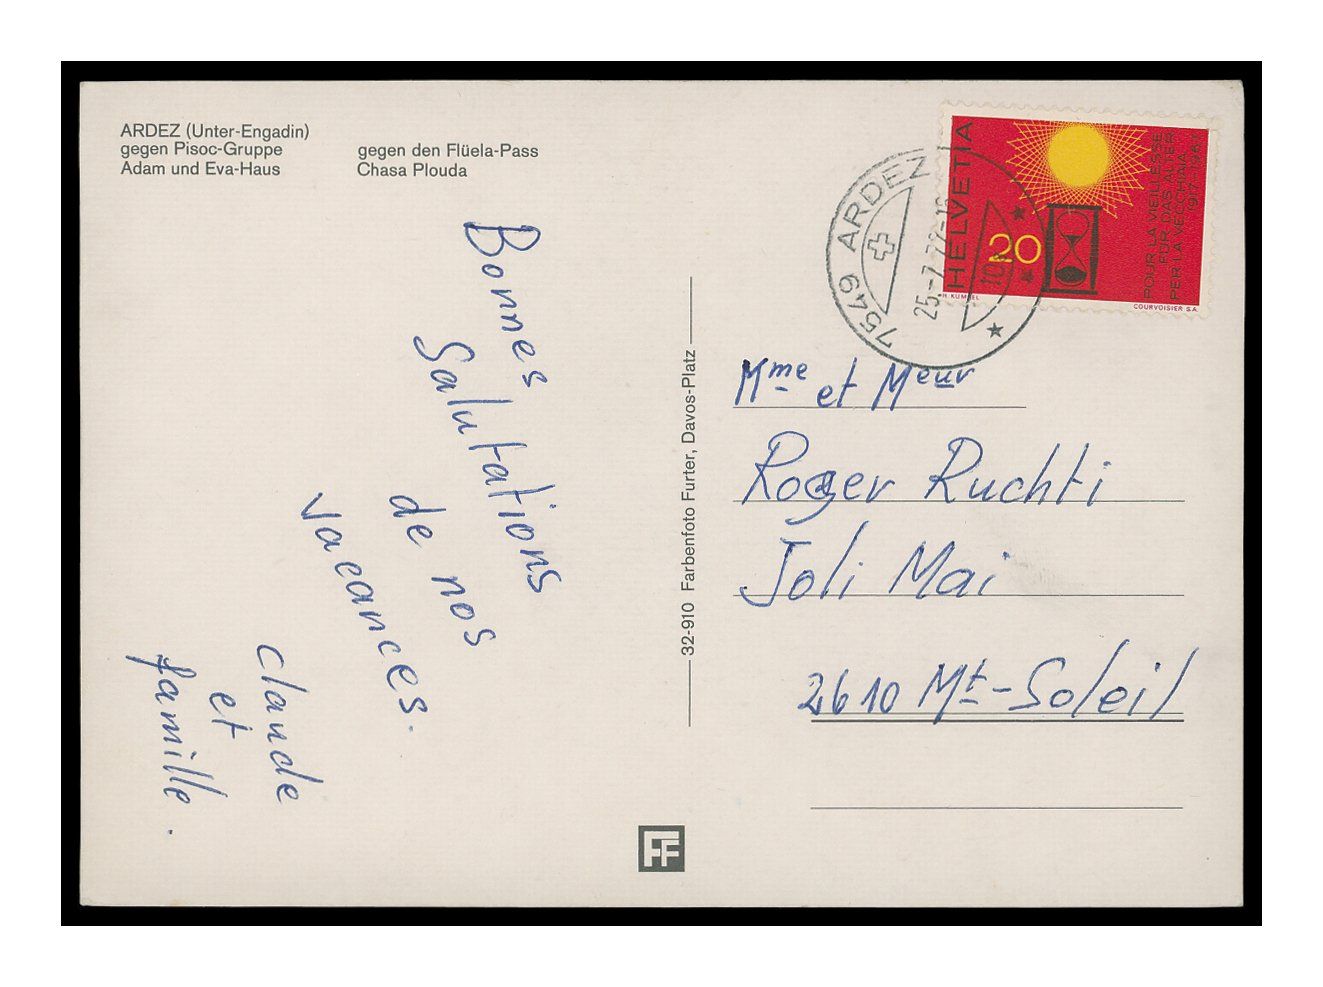 ARDEZ (Unter-Engadin)
gegen Pisoc-Gruppe
Adam und Eva-Haus
gegen den Flüela-Pass
Chasa Plouda
Bonnes
Salutations
de nos
vacances.
Claude
et
famille.
32-910 Farbenfoto Furter, Davos-Platz
FF
HELVETIA
20
POUR LA VIEILLESSE
FÜR DAS ALTER
PER LA VECCHIAIA
1917-1967
H. KÜMPEL
COURVOISIER S.A.
7549 ARDEZ
25.-7.72-18
10
Mme et Meur
Roger Ruchti
Joli Mai
2610 Mt-Soleil